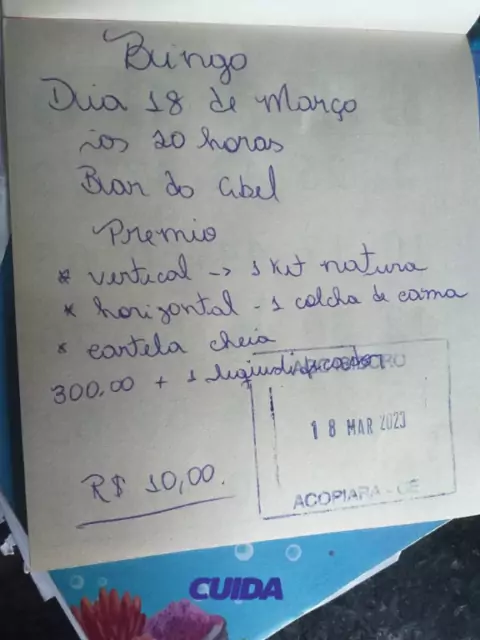 Bingo
Dia 18 de Março
às 20 horas
Bar do Abel
Premio
* vertical -> 1 Kit natura
* horizontal - 1 colcha de cama
* cartela cheia
300,00 + 1
18 MAR 2023
ACOPIARA - CE
R$ 10,00.
CUIDA